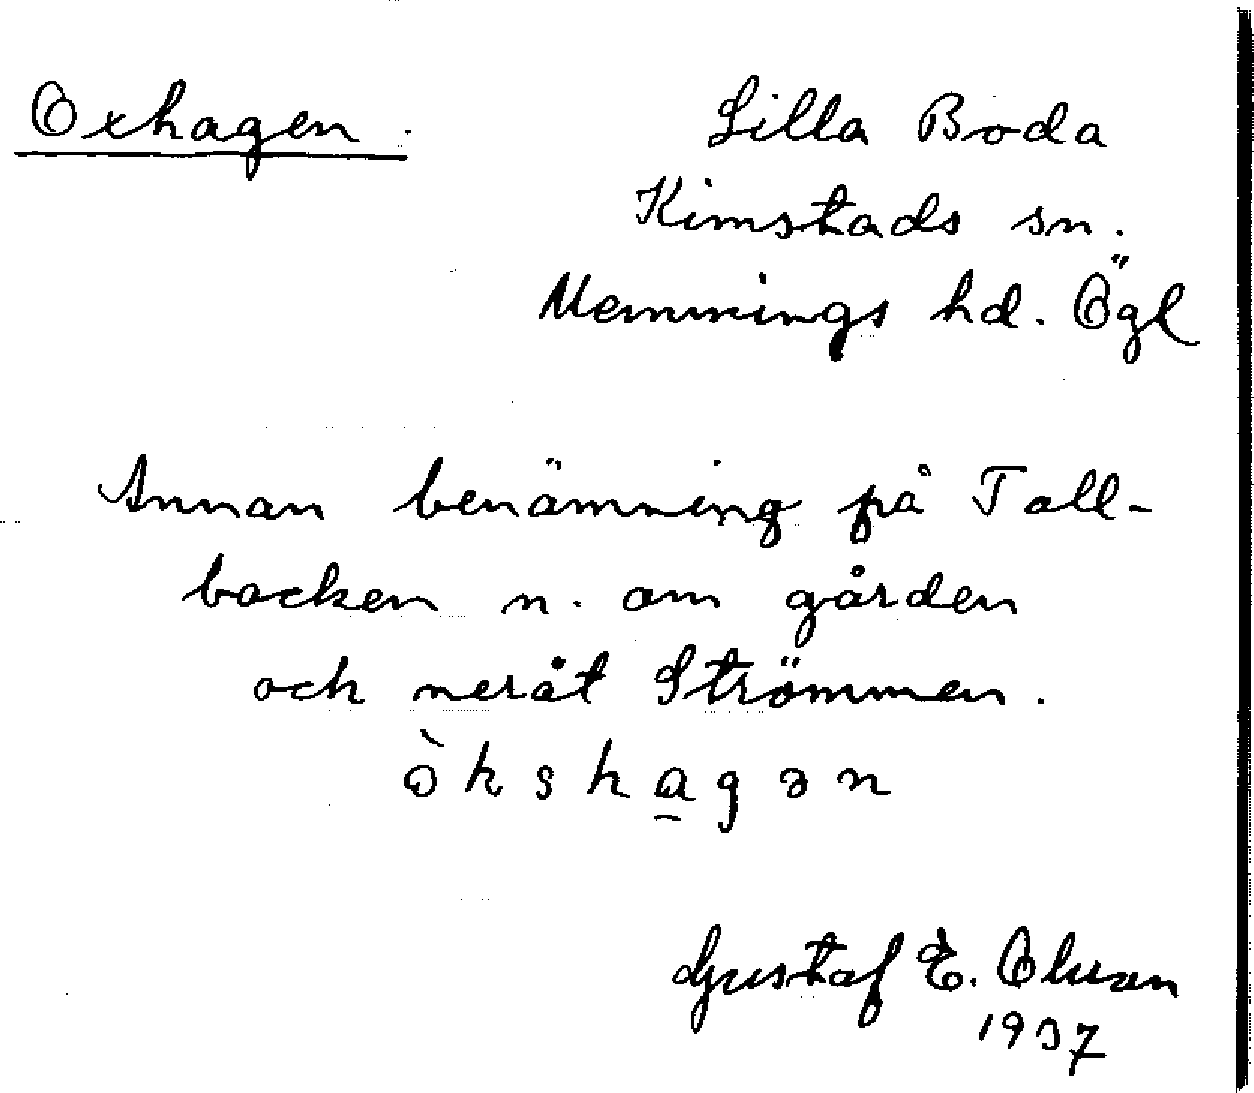 Oxhagen.
Lilla Boda
Kimstads sn.
Memmings hd. Ögl
Annan benämning på Tall-
backen n. om gården
och neråt Strömmen.
òkshagən
Gustaf E.
1937